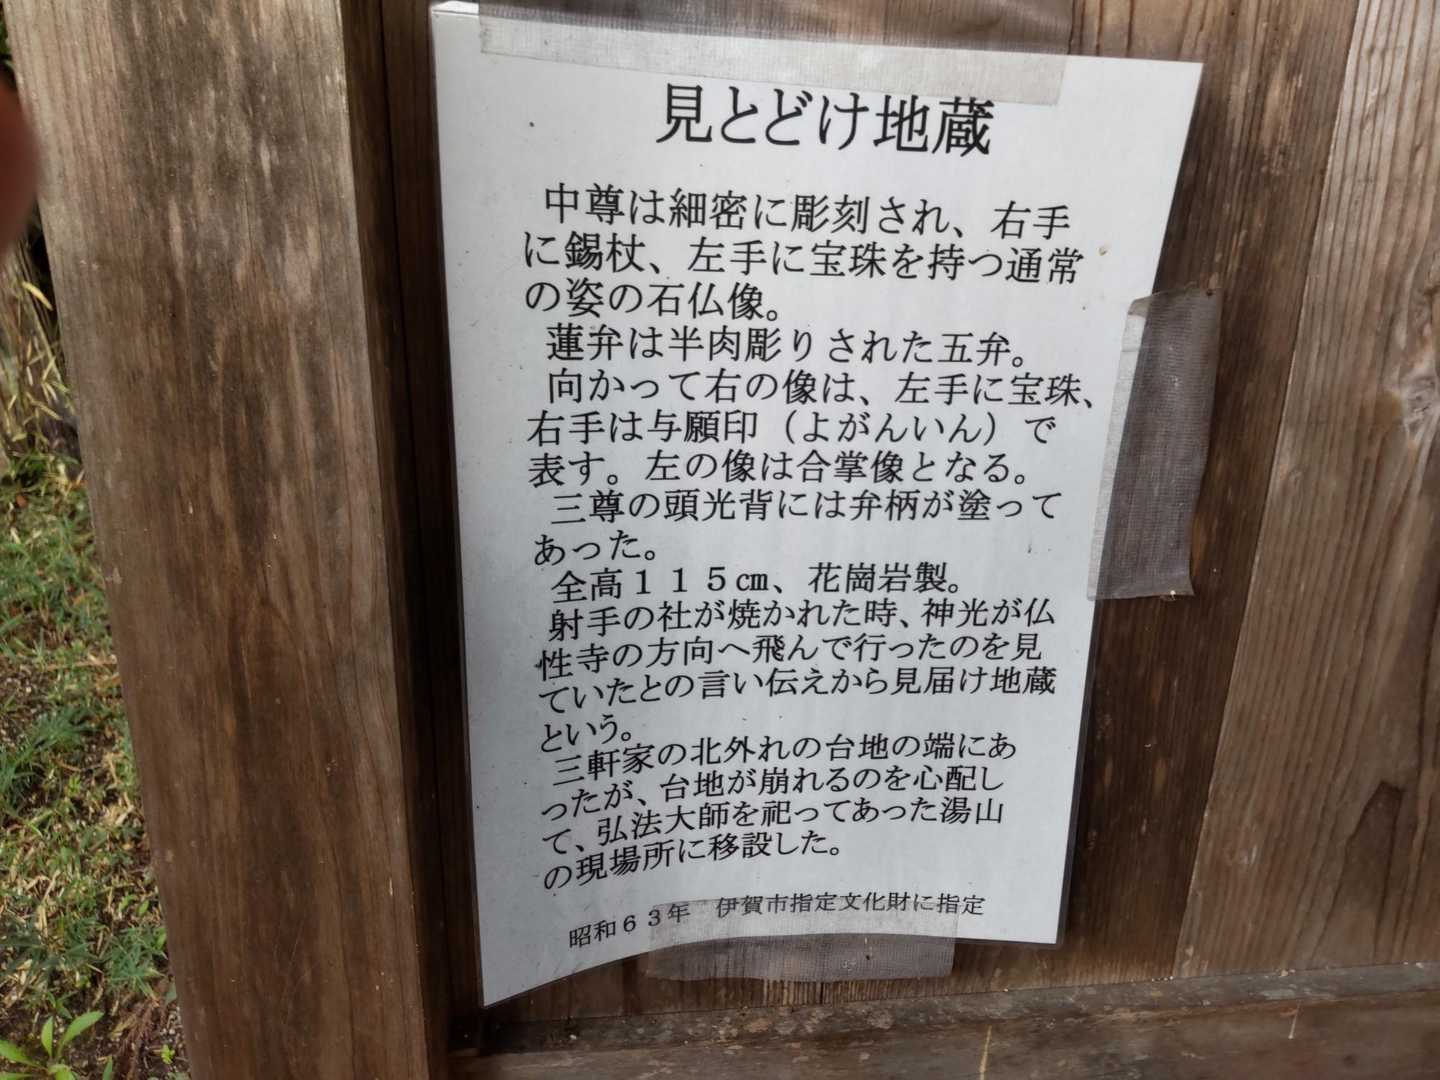 見とどけ地蔵
中尊は細密に彫刻され、右手
に錫杖、左手に宝珠を持つ通常
の姿の石仏像。
蓮弁は半肉彫りされた五弁。
向かって右の像は、左手に宝珠、
右手は与願印（よがんいん）で
表す。左の像は合掌像となる。
三尊の頭光背には弁柄が塗って
あった。
全高１１５㎝、花崗岩製。
射手の社が焼かれた時、神光が仏
性寺の方向へ飛んで行ったのを見
ていたとの言い伝えから見届け地蔵
という。
三軒家の北外れの台地の端にあ
ったが、台地が崩れるのを心配し
て、弘法大師を祀ってあった湯山
の現場所に移設した。
昭和６３年　伊賀市指定文化財に指定